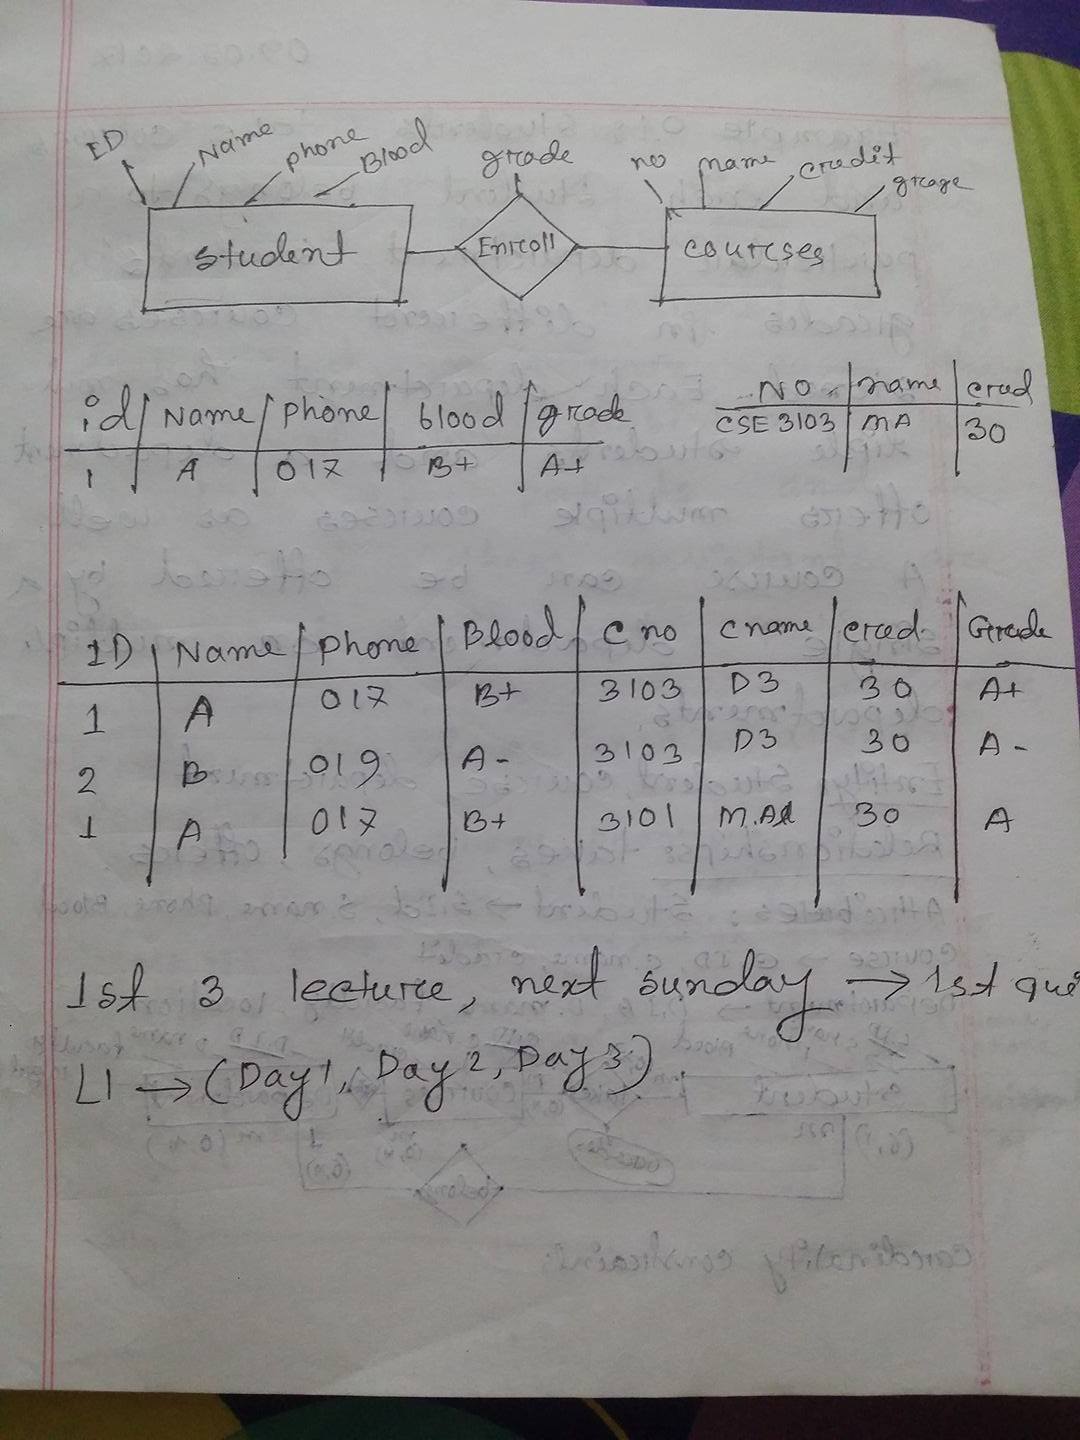 ID Name phone Blood grade no name credit grage
student Enroll courses
id Name phone blood grade
1 A 017 B+ A+
NO. name cred
CSE 3103 MA 30
ID Name phone Blood C no Cname cred. Grade
1 A 017 B+ 3103 D3 30 A+
2 B 019 A- 3103 D3 30 A-
1 A 017 B+ 3101 30 A
1st 3 lecture, next sunday → 1st qui
L1 → (Day 1, Day 2, Day 3)